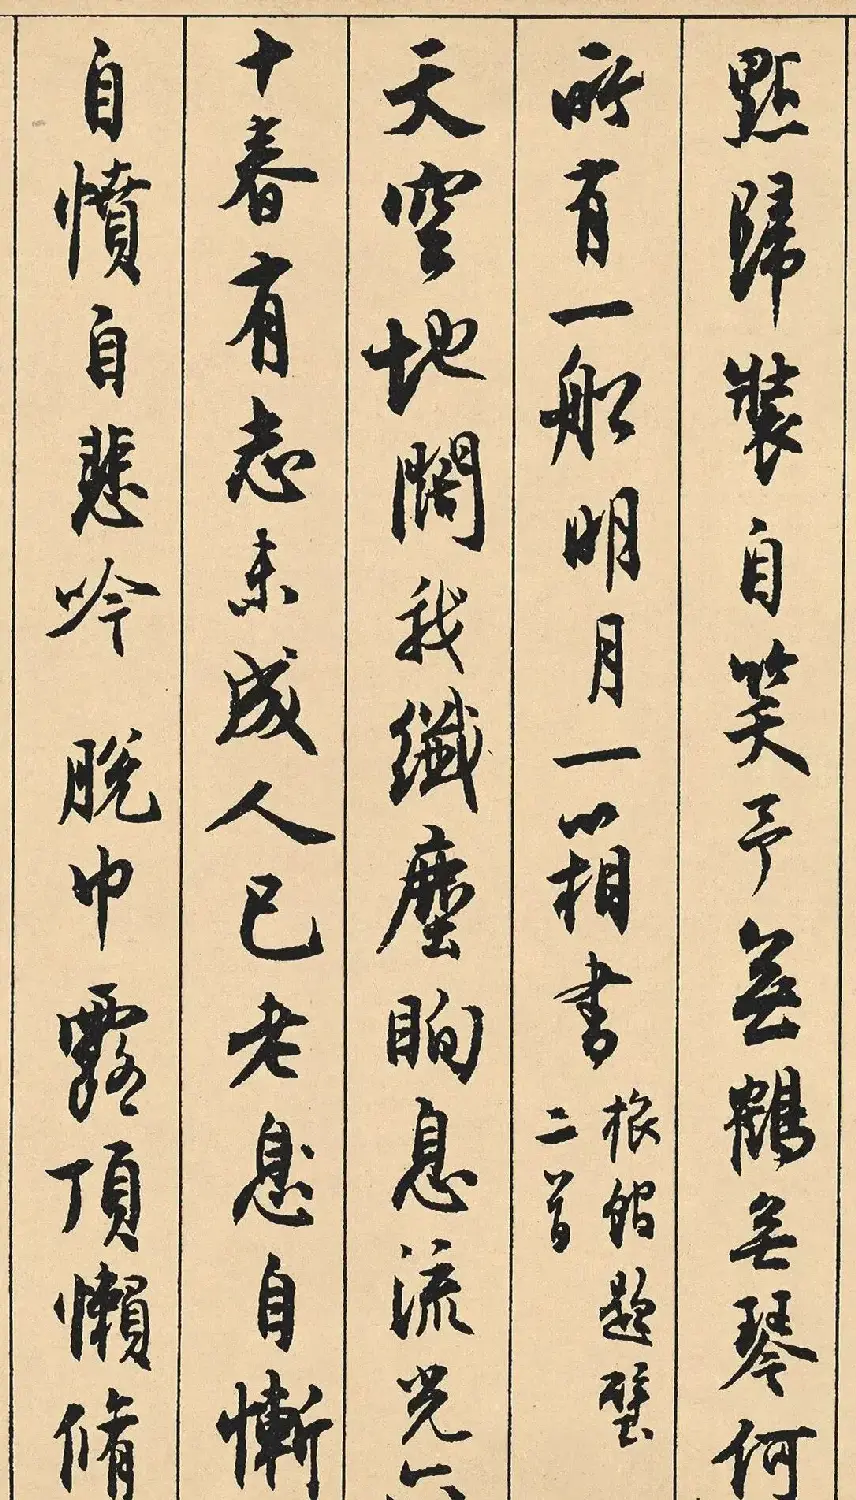 點歸裝自笑予無鶴無琴何
所有一船明月一箱書
旅館題壁
二首
天空地闊我纖塵眴息流光六
十春有志未成人已老
自慚
自憤自悲吟脫巾露頂懶脩